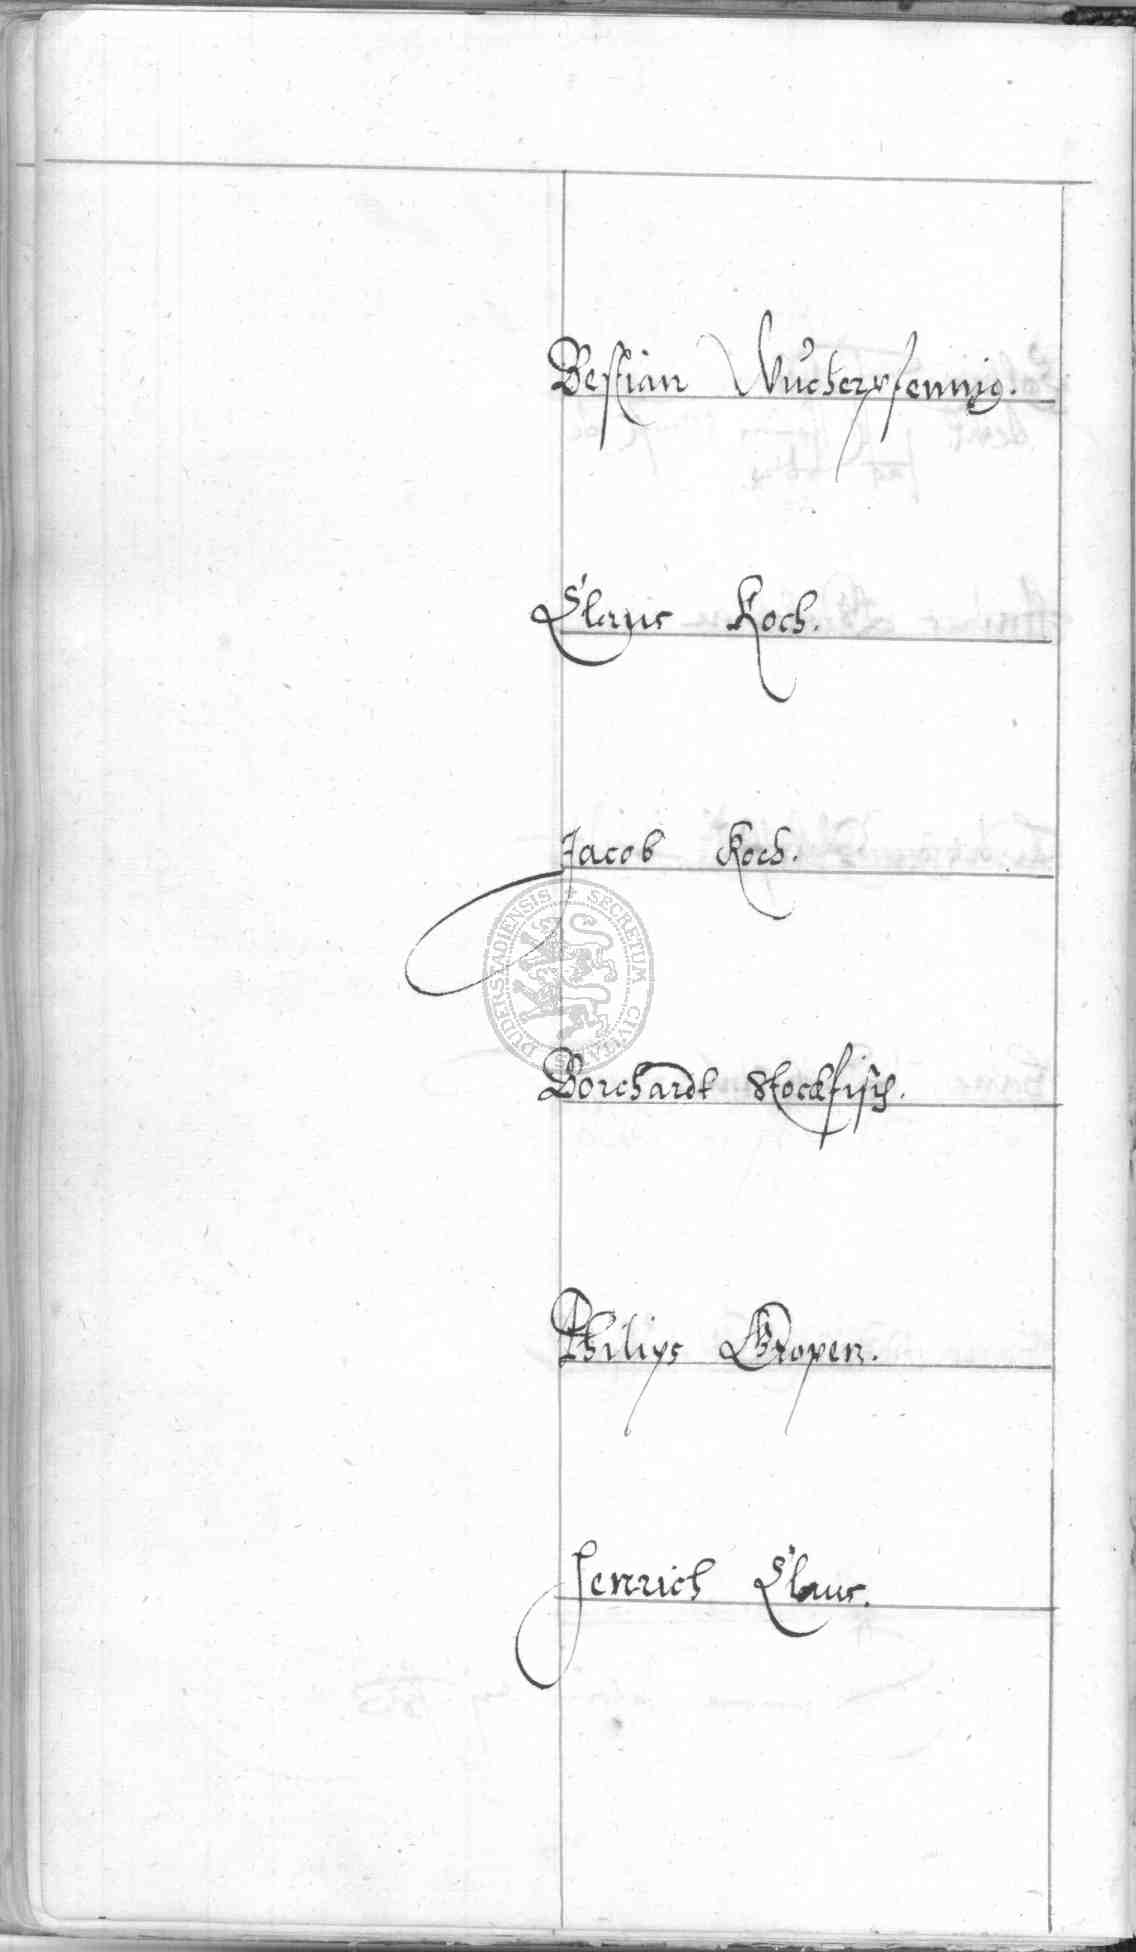 Bestian Wucherpfennig.
Claus Koch.
Jacob Koch.
SECRETUM CIVITA DUDERSTADIENSIS
Borchardt Stockfisch.
Philips Gropen.
Henrich Claus.